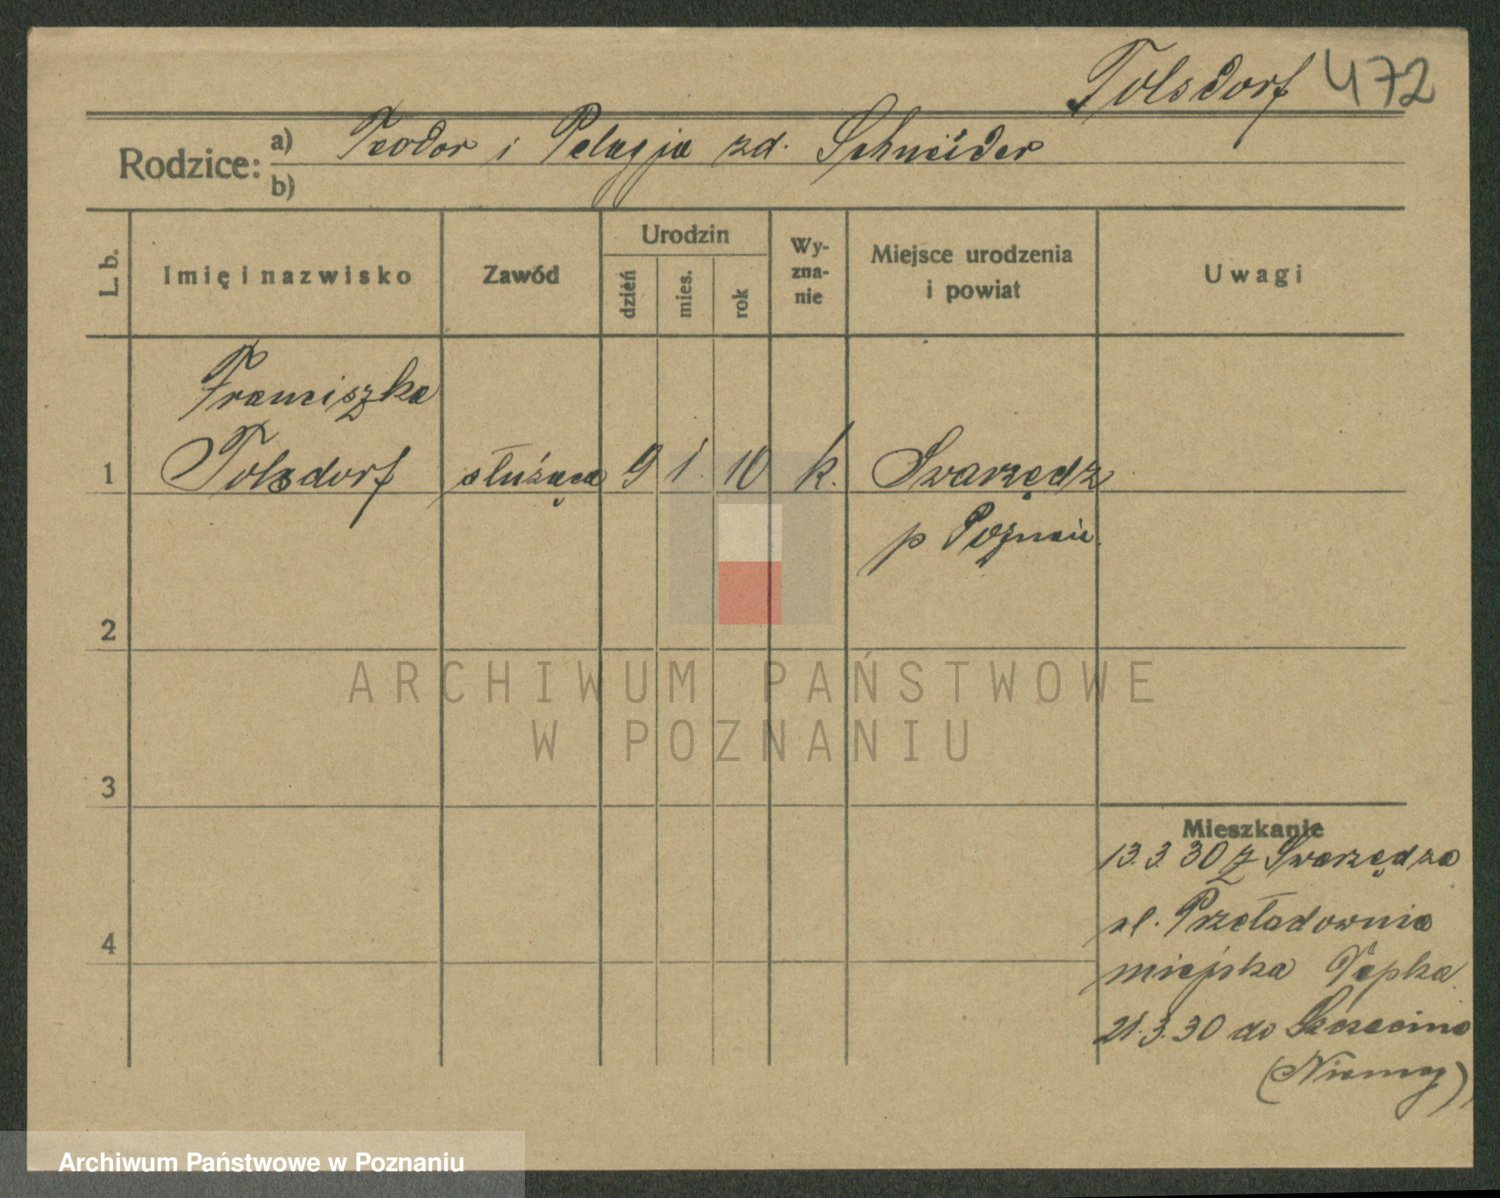 Tolsdorf 472
Rodzice: a) Teodor i Pelagja zd. Schneider
b)
L. b.
Imię i nazwisko
Zawód
Urodzin
dzień
mies.
rok
Wy-
zna-
nie
Miejsce urodzenia
i powiat
Uwagi
Franciszka
1 Tolsdorf służąca 9 1. 10 k. Swarzędz
p Poznań.
2
ARCHIWUM PAŃSTWOWE
W POZNANIU
3
Mieszkanie
13.3.30 z Swarzędza
ul. Przeładownia
4
miejska Vepka
21.3.30 do Szczecina
(Niemcy)
Archiwum Państwowe w Poznaniu